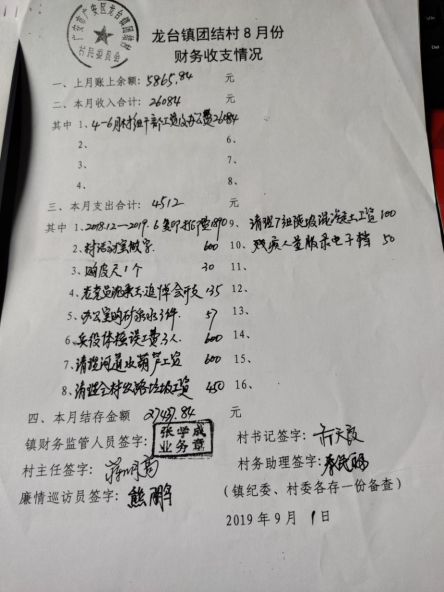 广安市广安区龙台镇团结村
村民委员会
龙台镇团结村8月份
财务收支情况
一、上月账上余额：5865.84 元
二、本月收入合计：26084 元
其中 1、4-6月村组干部工资及办公费26084 5、
2、 6、
3、 7、
4、 8、
三、本月支出合计：4512 元
其中 1、2018.12—2019.6复印打印费1890 9、清理7组院坝混凝土工资 100
2、村活动室 600 10、残疾人量服录电子档 50
3、购皮尺1个 30 11、
4、老党员 追悼会开支 135 12、
5、办公室购矿泉水3件 57 13、
6、兵役体检误工费3人 600 14、
7、清理河道水葫芦工资 600 15、
8、清理全村公路垃圾工资 450 16、
四、本月结存金额 27437.84 元
镇财务监管人员签字： 张学成
业务章
村书记签字：
村主任签字： 村务助理签字：
廉情巡访员签字：熊鹏 （镇纪委、村委各存一份备查）
2019年9月1日